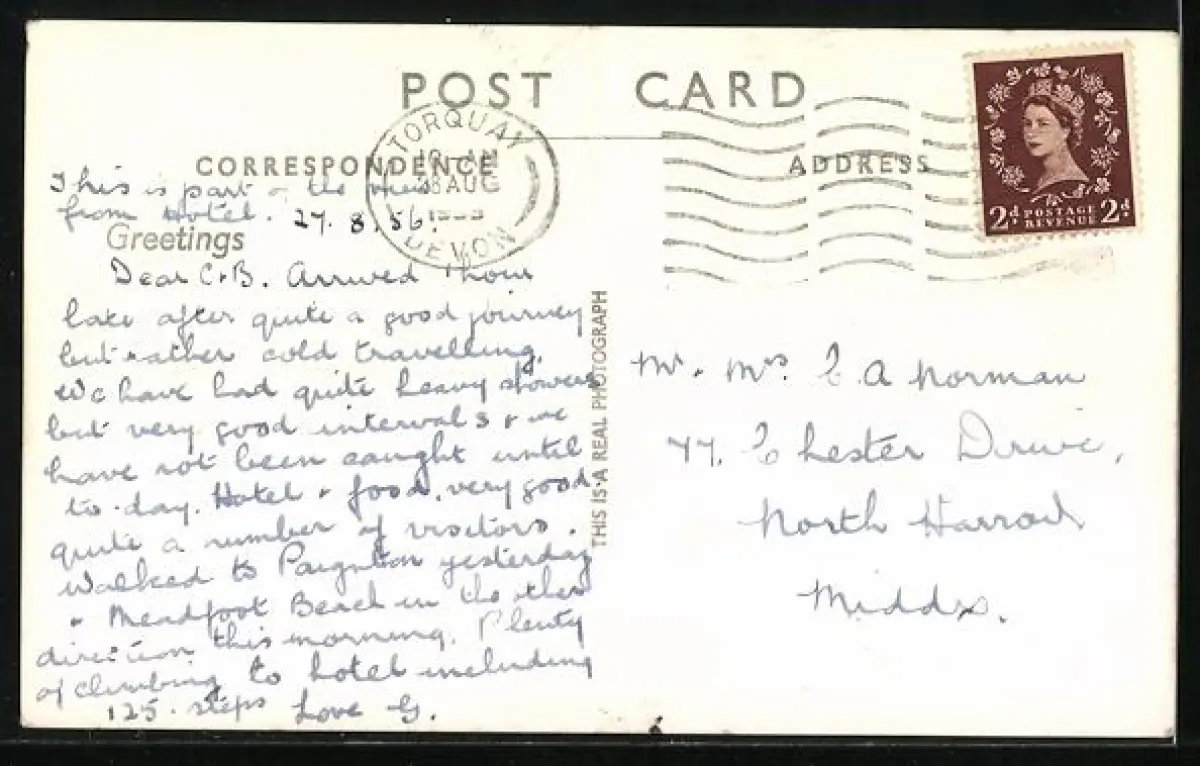 POST CARD
TORQUAY
AM
AUG
DEVON
CORRESPONDENCE
ADDRESS
2d POSTAGE REVENUE 2d
This is part of the view
from Hotel. 27. 8. 56.
Greetings
Dear C+B. Arrived 1 hour
late after quite a good journey
but rather cold travelling.
We have had quite heavy showers
but very good intervals + we
have not been caught until
to-day. Hotel + food, very good.
quite a number of visitors.
Walked to Paignton yesterday
+ Meadfoot Beach in the other
direction this morning. Plenty
of climbing to hotel including
125. steps Love G.
THIS IS A REAL PHOTOGRAPH
Mr. Mrs. A Norman
77. Chester Drive,
North Harrow
Middx.